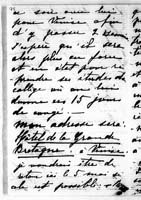 ne sois avec lui
pour Venise afin
d'y passer 2 semaines
J'espère que il sera
alors plus en forme
et en état pour re-
prendre ses études de
collège si on lui
donne ces 15 jours
de congé.
Mon adresse sera
Hôtel de la Grande
Bretagne à Venise
je voudrais être de
retour ici le 5 mai si
cela est possible.